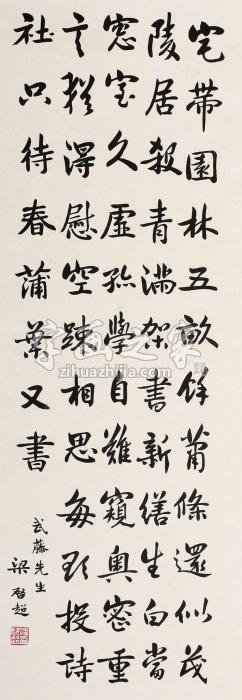 宅帶園林五畝餘蕭條還似茂
陵居殺青滿架書新繕生白當
窓室久虛孤學自難窺奧密重
言猶得慰空踈相思每欲投詩
社只待春蒲葉又書
武藤先生
梁啟超
字画之家
zihuazhijia.com